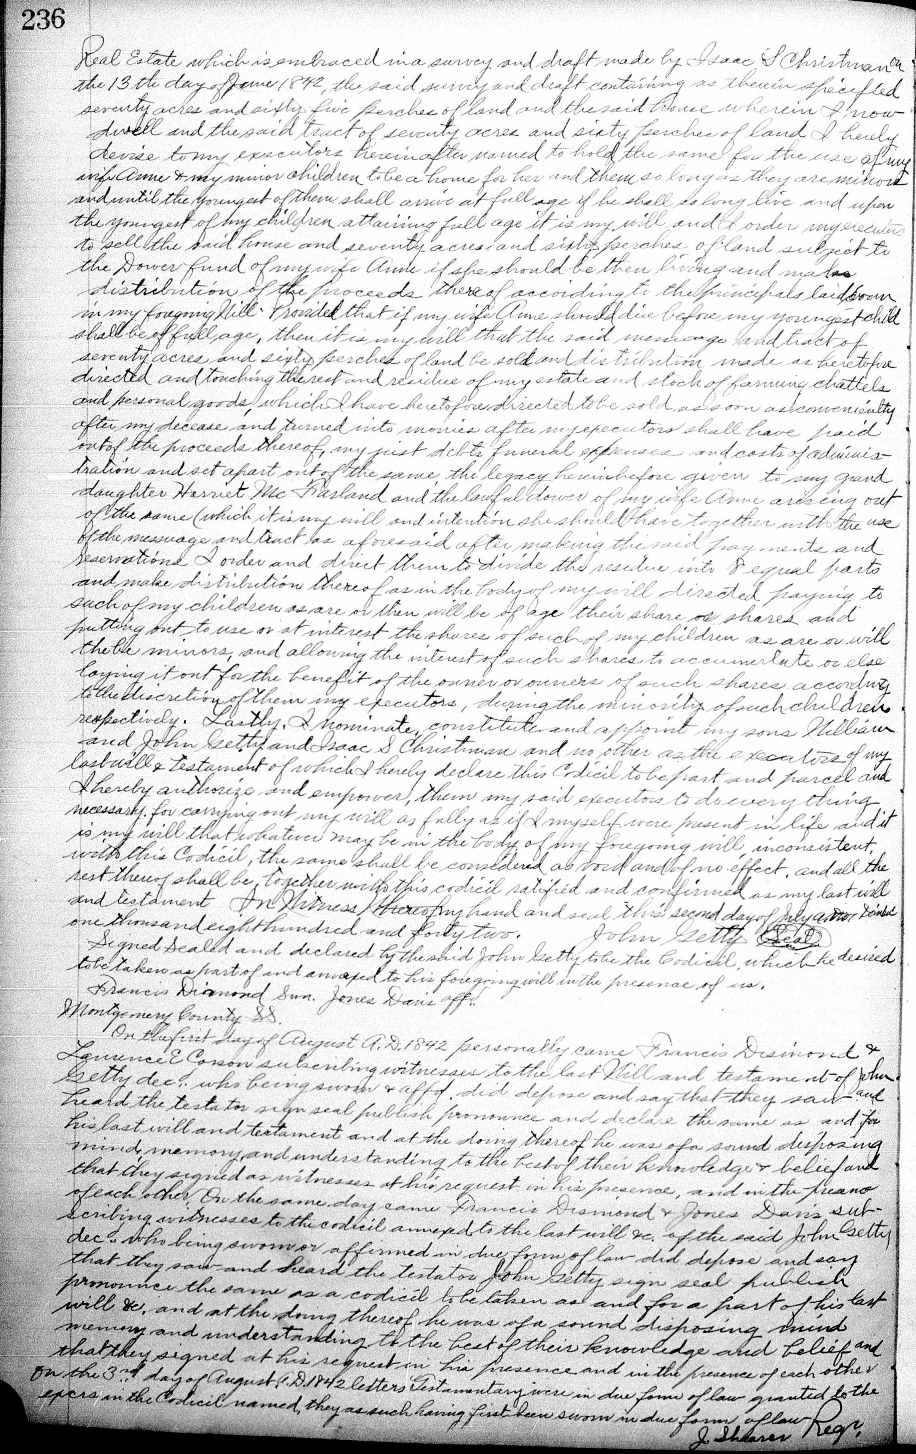 236
Real Estate which is embraced in a survey and draft made by Isaac S Christman on
the 13th day of June 1842, the said survey and draft containing as therein specified
seventy acres and sixty five perches of land and the said house wherein I now
dwell and the said tract of seventy acres and sixty perches of land I hereby
devise to my executors hereinafter named to hold the same for the use of my
wife Anne & my minor children to be a home for her and them so long as they are minors
and until the youngest of them shall arrive at full age if he shall so long live and upon
the youngest of my children attaining full age it is my will and I order my executors
to sell the said house and seventy acres and sixty perches of land subject to
the Dower fund of my wife Anne if she should be then living and make
distribution of the proceeds thereof according to the principals laid down
in my foregoing Will. Provided that if my wife Anne should die before my youngest child
shall be of full age, then it is my will that the said messuage and tract of
seventy acres and sixty perches of land be sold and distribution made as heretofore
directed and touching the rest and residue of my estate and stock of farming chattels
and personal goods, which I have heretofore directed to be sold as soon as conveniently
after my decease and turned into monies after my executors shall have paid
out of the proceeds thereof, my just debts funeral expenses and costs of adminis-
tration and set apart out of the same the legacy hereinbefore given to my grand
daughter Harriet Mc Farland and the lawful dower of my wife Anne arising out
of the same (which it is my will and intention she should have together with the use
of the messuage and tract as aforesaid after making the said payments and
reservations I order and direct them to divide the residue into 8 equal parts
and make distribution thereof as in the body of my will directed paying to
such of my children as are or then will be of age their share or shares and
putting out to use or at interest the shares of such of my children as are or will
then be minors, and allowing the interest of such shares to accumulate or else
laying it out for the benefit of the owner or owners of such shares according
to the discretion of them my executors, during the minority of such children
respectively. Lastly. I nominate, constitute and appoint my sons William
and John Getty and Isaac S Christman and no other as the executors of my
last will & testament of which I hereby declare this Codicil to be part and parcel and
I hereby authorize and empower, them my said executors to do every thing
necessary for carrying out my will as fully as if I myself were present in life and it
is my will that whatever may be in the body of my foregoing will inconsistent,
with this Codicil, the same shall be considered as void and of no effect, and all the
rest thereof shall be, together with this codicil ratified and confirmed as my last will
and testament In Witness whereof my hand and seal this second day of July anno Domini
one thousand eight hundred and forty two. John Getty (Seal)
Signed Sealed and declared by the said John Getty to be the Codicil, which he desired
to be taken as part of and annexed to his foregoing will in the presence of us.
Francis Dimond Swn. Jones Davis aff.
Montgomery County SS.
On the first day of August A.D. 1842 personally came Francis Desmond &
Laurence E Corson subscribing witnesses to the last Will and testament of John
Getty dec. who being sworn & affd. did depose and say that they saw and
heard the testator sign seal publish pronounce and declare the same as and for
his last will and testament and at the doing thereof he was of a sound disposing
mind, memory and understanding to the best of their knowledge & belief and
that they signed as witnesses at his request in his presence, and in the presence
of each other, On the same day came Francis Desmond & Jones Davis sub-
scribing witnesses to the codicil annexed to the last will &c. of the said John Getty
dec. who being sworn or affirmed in due form of law did depose and say
that they saw and heard the testator John Getty sign seal publish
pronounce the same as a codicil to be taken as and for a part of his last
will &c. and at the doing thereof he was of a sound disposing mind
memory and understanding to the best of their knowledge and belief and
that they signed at his request in his presence and in the presence of each other
On the 3rd day of August A.D. 1842 letters Testamentary were in due form of law granted to the
excrs in the Codicil named, they as such having first been sworn in due form of law
J. Shearer Regr.